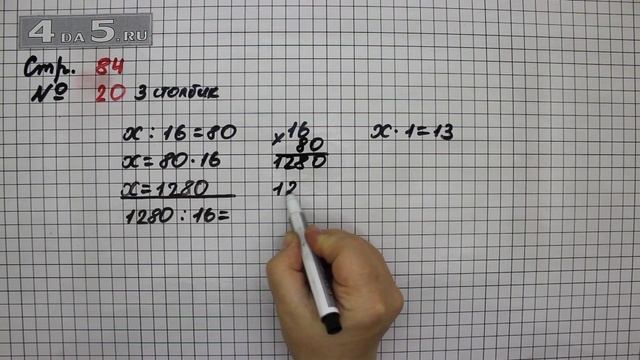 4 DA 5.RU
Стр. 84
№ 20 3 столбик
x : 16 = 80
x = 80 · 16
x = 1280
1280 : 16 =
16
× 80
1280
12
x · 1 = 13